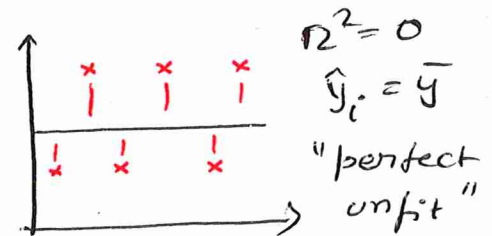 R² = 0
ŷᵢ = ȳ
"perfect
unfit"